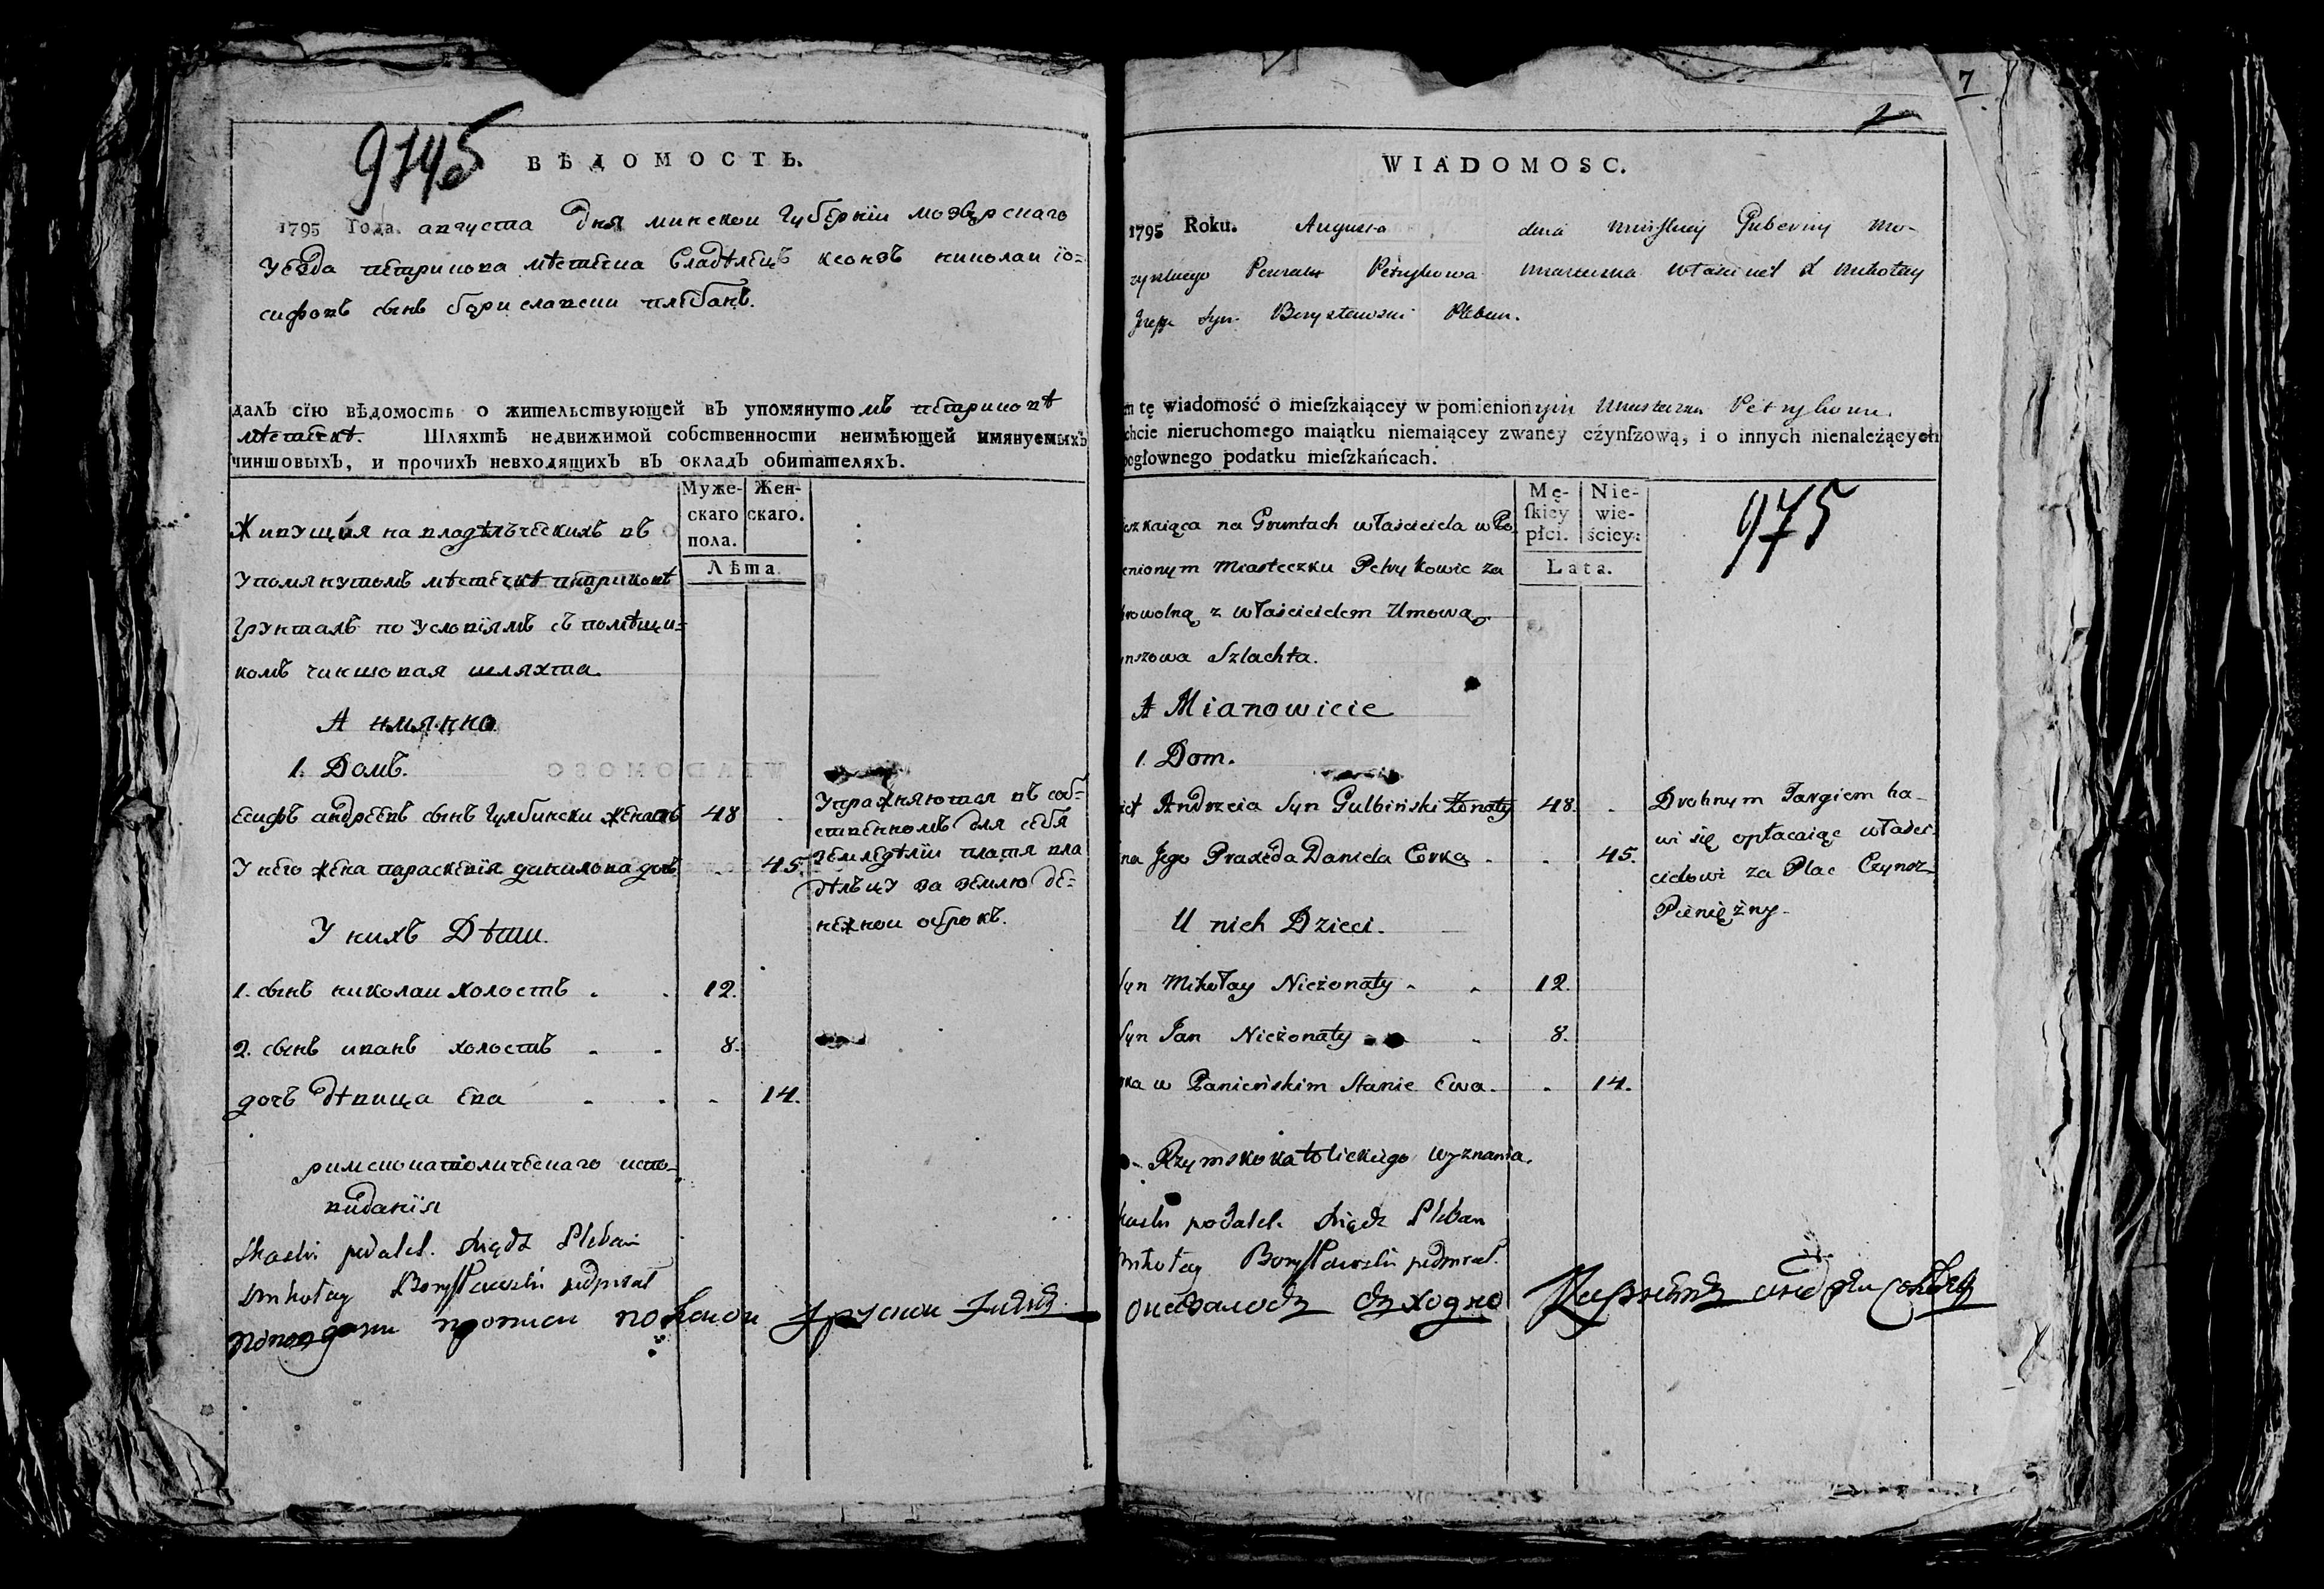 9745
ВѢДОМОСТЬ.
1795 Года. августа Дня минскои Губернїи мозырскаго
Уезда петрикова мѣстечка Владѣлецъ ксонзъ николаи їо=
сифовъ сынъ бориславски плебанъ.
далъ сїю вѣдомость о жительствующей въ упомянутомъ петриковѣ
мѣстечкѣ. Шляхтѣ недвижимой собственности неимѣющей имянуемыхъ
чиншовыхъ, и прочихъ невходящихъ въ окладъ обитателяхъ.
Муже-
скаго
пола.
Жен-
скаго.
Лѣта.
Живущия на владѣльческихъ въ
Упомянутомъ мѣстечкѣ петриковѣ
Грунтахъ по Условїямъ съ помѣщи=
комъ чиншовая шляхта.
А имянно
1. Домъ.
есифъ андреевъ сынъ Гулбински женатъ 48 .
У него жена параскевїя данилова дочь . 45.
Упражняются въ соб=
ственномъ для себя
земледѣлїи платя вла
дѣльцу за землю де=
нежнои оброкъ.
У нихъ Дѣти.
1. сынъ николаи холостъ . . 12.
2. сынъ иванъ холостъ . . 8.
дочь дѣвица ева . . . 14.
римскокатолическаго испо=
виданїя
Skaski podałel. Xiądz Pleban
Mikołay Boryssławski podpisał
7
2
WIADOMOSC.
1795 Roku. Augusta dnia Minskiey Gubernij Mo-
zyrskiego Powiatu Petrykowa Miasteczka właściciel X Mikołay
Jozefa Syn Borysławski Pleban.
m tę wiadomość o mieſzkaiącey w pomienionym Miasteczku Petrykowie
chcie nieruchomego maiątku niemaiącey zwaney czynſzową, i o innych nienależących
pogłownego podatku mieſzkańcach.
Mę-
ſkiey
płci.
Nie-
wie-
ściey:
Lata.
975
szkaiąca na Gruntach właściciela w Po-
enionym Miasteczku Petrykowie za
rowolną z właścicielem Umową
nszowa Szlachta.
A Mianowicie
1. Dom.
Andrzeia Syn Gulbiński Żonaty 48. .
na Jego Praxeda Daniela Corka . . 45.
Drobnym Targiem ba-
wi się opłacaiąc właści-
cielowi za Plac Czynsz
Pieniężny.
U nich Dzieci.
Syn Mikołay Nieżonaty . . 12.
Syn Jan Nieżonaty . . 8.
rka w Panieńskim Stanie Ewa. . 14.
Rzymskokatolickiego Wyznania.
kaski podałel. Xiądz Pleban
Mikołay Boryssławski podpisał.